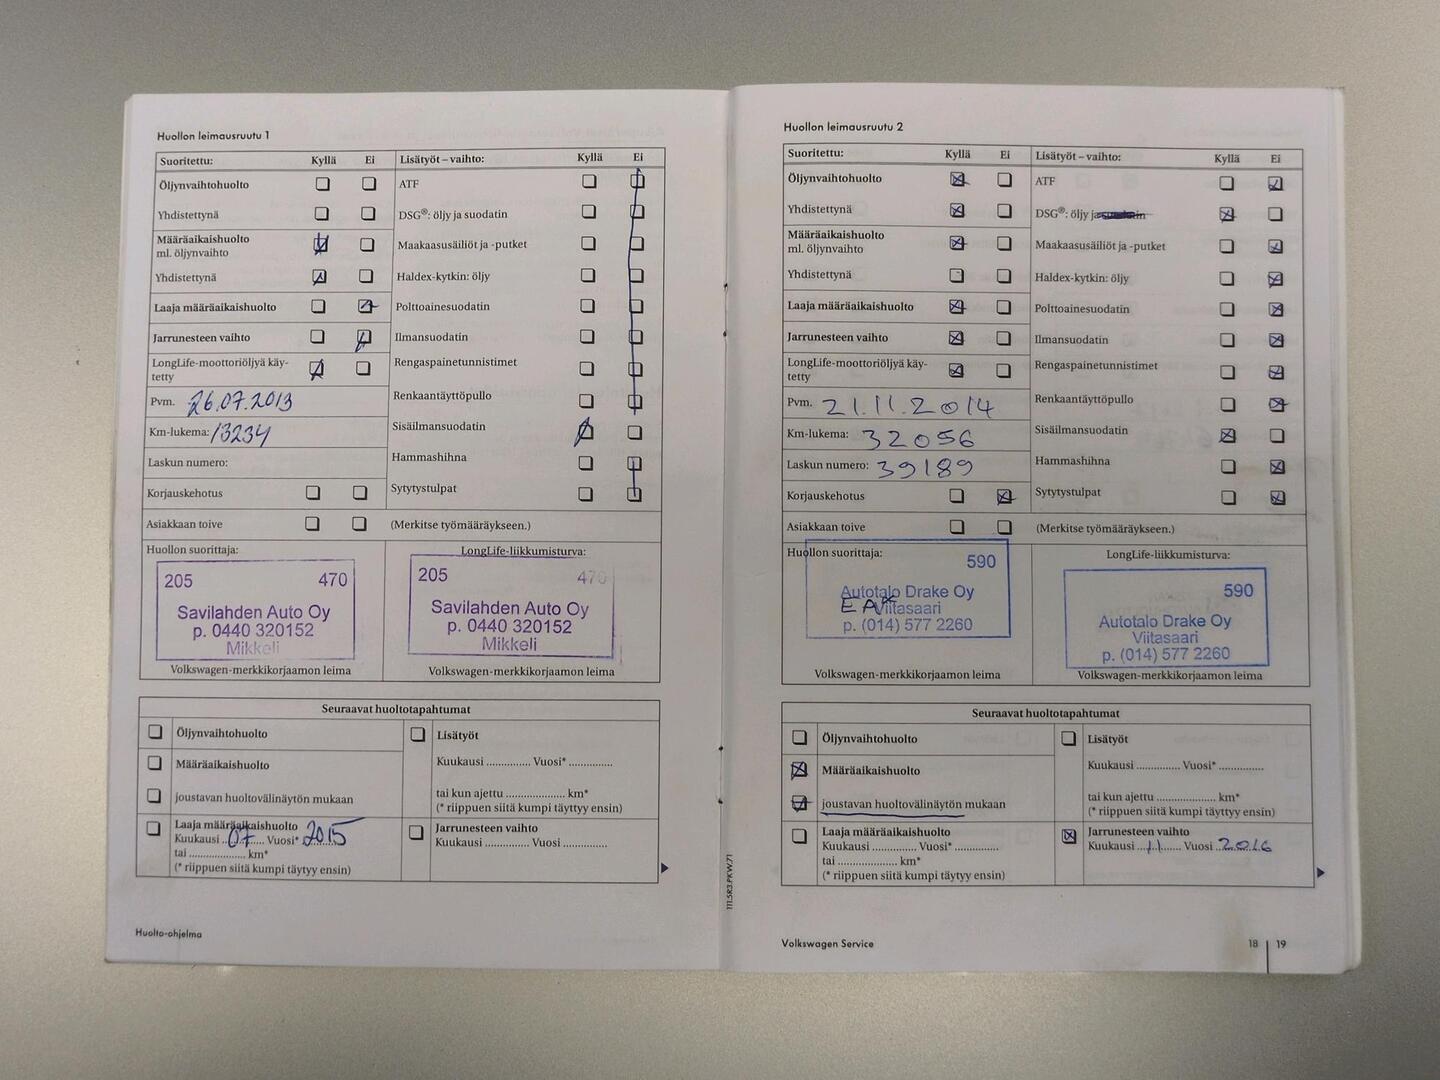 Huollon leimausruutu 1
Suoritettu: Kyllä Ei
Öljynvaihtohuolto
Yhdistettynä
Määräaikaishuolto
ml. öljynvaihto
Yhdistettynä
Laaja määräaikaishuolto
Jarrunesteen vaihto
LongLife-moottoriöljyä käy-
tetty
Pvm. 26.07.2013
Km-lukema: 13234
Laskun numero:
Korjauskehotus
Asiakkaan toive
Lisätyöt – vaihto: Kyllä Ei
ATF
DSG®: öljy ja suodatin
Maakaasusäiliöt ja -putket
Haldex-kytkin: öljy
Polttoainesuodatin
Ilmansuodatin
Rengaspainetunnistimet
Renkaantäyttöpullo
Sisäilmansuodatin
Hammashihna
Sytytystulpat
(Merkitse työmääräykseen.)
Huollon suorittaja:
205 470
Savilahden Auto Oy
p. 0440 320152
Mikkeli
Volkswagen-merkkikorjaamon leima
LongLife-liikkumisturva:
205 470
Savilahden Auto Oy
p. 0440 320152
Mikkeli
Volkswagen-merkkikorjaamon leima
Seuraavat huoltotapahtumat
Öljynvaihtohuolto
Määräaikaishuolto
joustavan huoltovälinäytön mukaan
Laaja määräaikaishuolto
Kuukausi ..07.. Vuosi* 2015
tai .................. km*
(* riippuen siitä kumpi täytyy ensin)
Lisätyöt
Kuukausi .............. Vuosi* ..............
tai kun ajettu ................... km*
(* riippuen siitä kumpi täyttyy ensin)
Jarrunesteen vaihto
Kuukausi .............. Vuosi ..............
Huolto-ohjelma
Huollon leimausruutu 2
Suoritettu: Kyllä Ei
Öljynvaihtohuolto
Yhdistettynä
Määräaikaishuolto
ml. öljynvaihto
Yhdistettynä
Laaja määräaikaishuolto
Jarrunesteen vaihto
LongLife-moottoriöljyä käy-
tetty
Pvm. 21.11.2014
Km-lukema: 32056
Laskun numero: 39189
Korjauskehotus
Asiakkaan toive
Lisätyöt – vaihto: Kyllä Ei
ATF
DSG®: öljy ja suodatin
Maakaasusäiliöt ja -putket
Haldex-kytkin: öljy
Polttoainesuodatin
Ilmansuodatin
Rengaspainetunnistimet
Renkaantäyttöpullo
Sisäilmansuodatin
Hammashihna
Sytytystulpat
(Merkitse työmääräykseen.)
Huollon suorittaja:
590
Autotalo Drake Oy
EAK
Viitasaari
p. (014) 577 2260
Volkswagen-merkkikorjaamon leima
LongLife-liikkumisturva:
590
Autotalo Drake Oy
Viitasaari
p. (014) 577 2260
Volkswagen-merkkikorjaamon leima
Seuraavat huoltotapahtumat
Öljynvaihtohuolto
Määräaikaishuolto
joustavan huoltovälinäytön mukaan
Laaja määräaikaishuolto
Kuukausi .............. Vuosi* ..............
tai .................. km*
(* riippuen siitä kumpi täytyy ensin)
Lisätyöt
Kuukausi .............. Vuosi* ..............
tai kun ajettu ................... km*
(* riippuen siitä kumpi täyttyy ensin)
Jarrunesteen vaihto
Kuukausi ...11... Vuosi 2016
111.5R3.PKW.71
Volkswagen Service
18 | 19